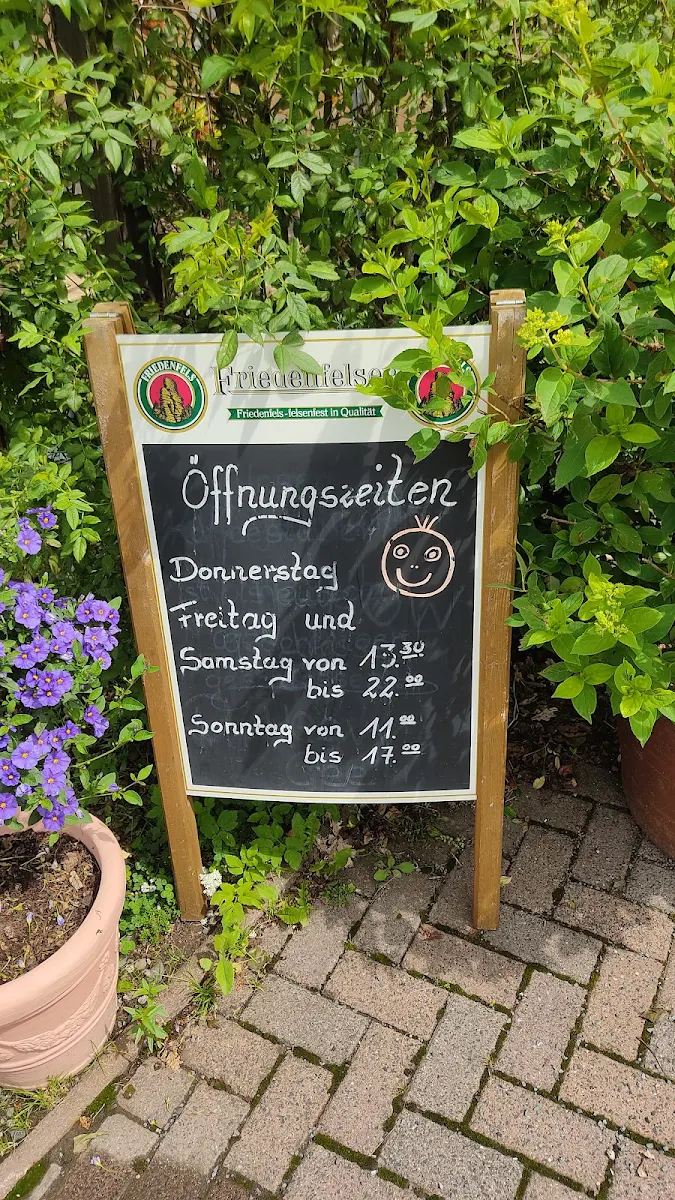 FRIEDENFELS
Friedenfelser
Friedenfels-felsenfest in Qualität
Öffnungszeiten
Donnerstag
Freitag und
Samstag von 13.30
bis 22.00
Sonntag von 11.00
bis 17.00